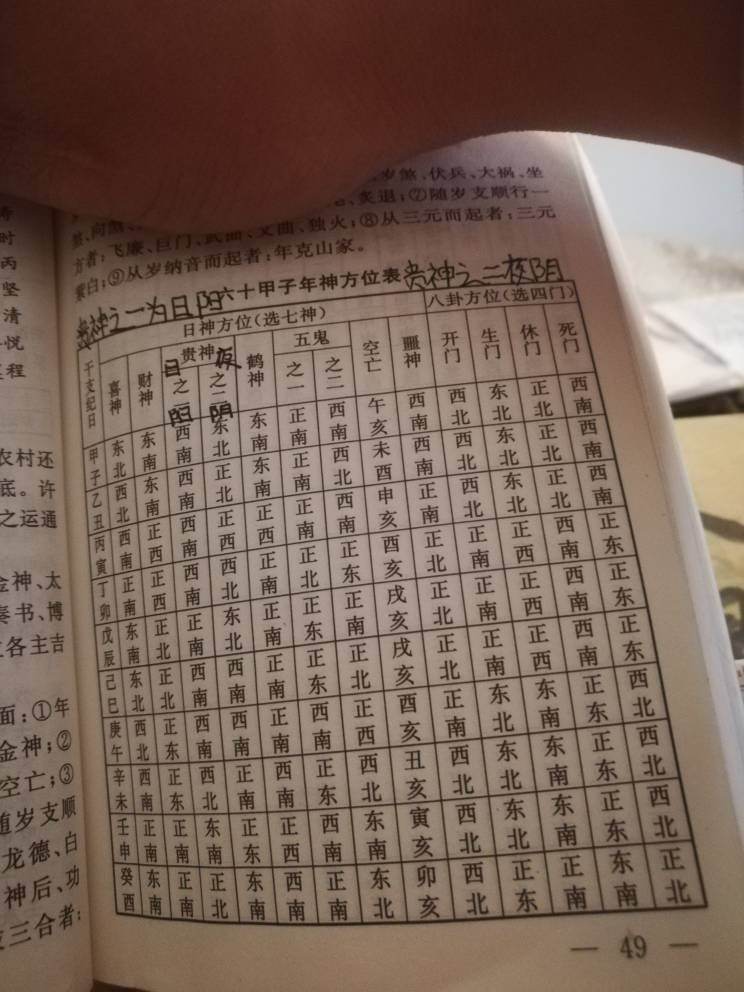 时
丙
坚
清
悦
程
农村还
底。许
之运通
金神、太
奏书、博
各主吉
面:①年
金神;②
空亡;③
随岁支顺
龙德、白
神后、功
三合者:
岁煞、伏兵、大祸、坐
煞、向煞、 炙退;⑦随岁支顺行一
方者:飞廉、巨门、武曲、文曲、独火;⑧从三元而起者:三元
紫白;⑨从岁纳音而起者:年克山家。
贵神之一为日阳
六十甲子年神方位表
贵神之二夜阴
日神方位(选七神) 八卦方位(选四门)
干支纪日 喜神 财神 贵神 鹤神 五鬼 空亡 噩神 开门 生门 休门 死门
日 夜
之一 之二 之一 之二
阳 阴
甲子 东北 东南 西南 东北 东南 正南 西南 午亥 西南 西北 东北 正北 西南
乙丑 西北 东南 西南 正北 东南 正南 西北 未酉 西南 西北 东北 正北 西南
丙寅 西南 正西 西南 正西 正南 正南 西南 申亥 正南 西北 东北 正北 西南
丁卯 正南 正西 西南 西北 正南 正北 正东 酉亥 正北 正南 正西 西南 正东
戊辰 东南 正北 正南 东北 正南 正东 正南 戌亥 正北 正南 正西 西南 正东
己巳 东北 正北 西南 西南 正南 正东 正北 戌亥 正北 正南 正西 西南 正东
庚午 西北 正东 西南 西南 正南 西南 正西 酉亥 正南 东北 东南 正东 西北
辛未 西南 正东 西北 正南 西南 正东 西北 丑亥 西北 东北 东南 正东 西北
壬申 正南 正南 东南 正东 正西 西南 东南 寅亥 西北 东北 东南 正东 西北
癸酉 东南 正南 正北 东南 西南 正南 东北 卯亥 西北 正东 正南 东南 正北
— 49 —